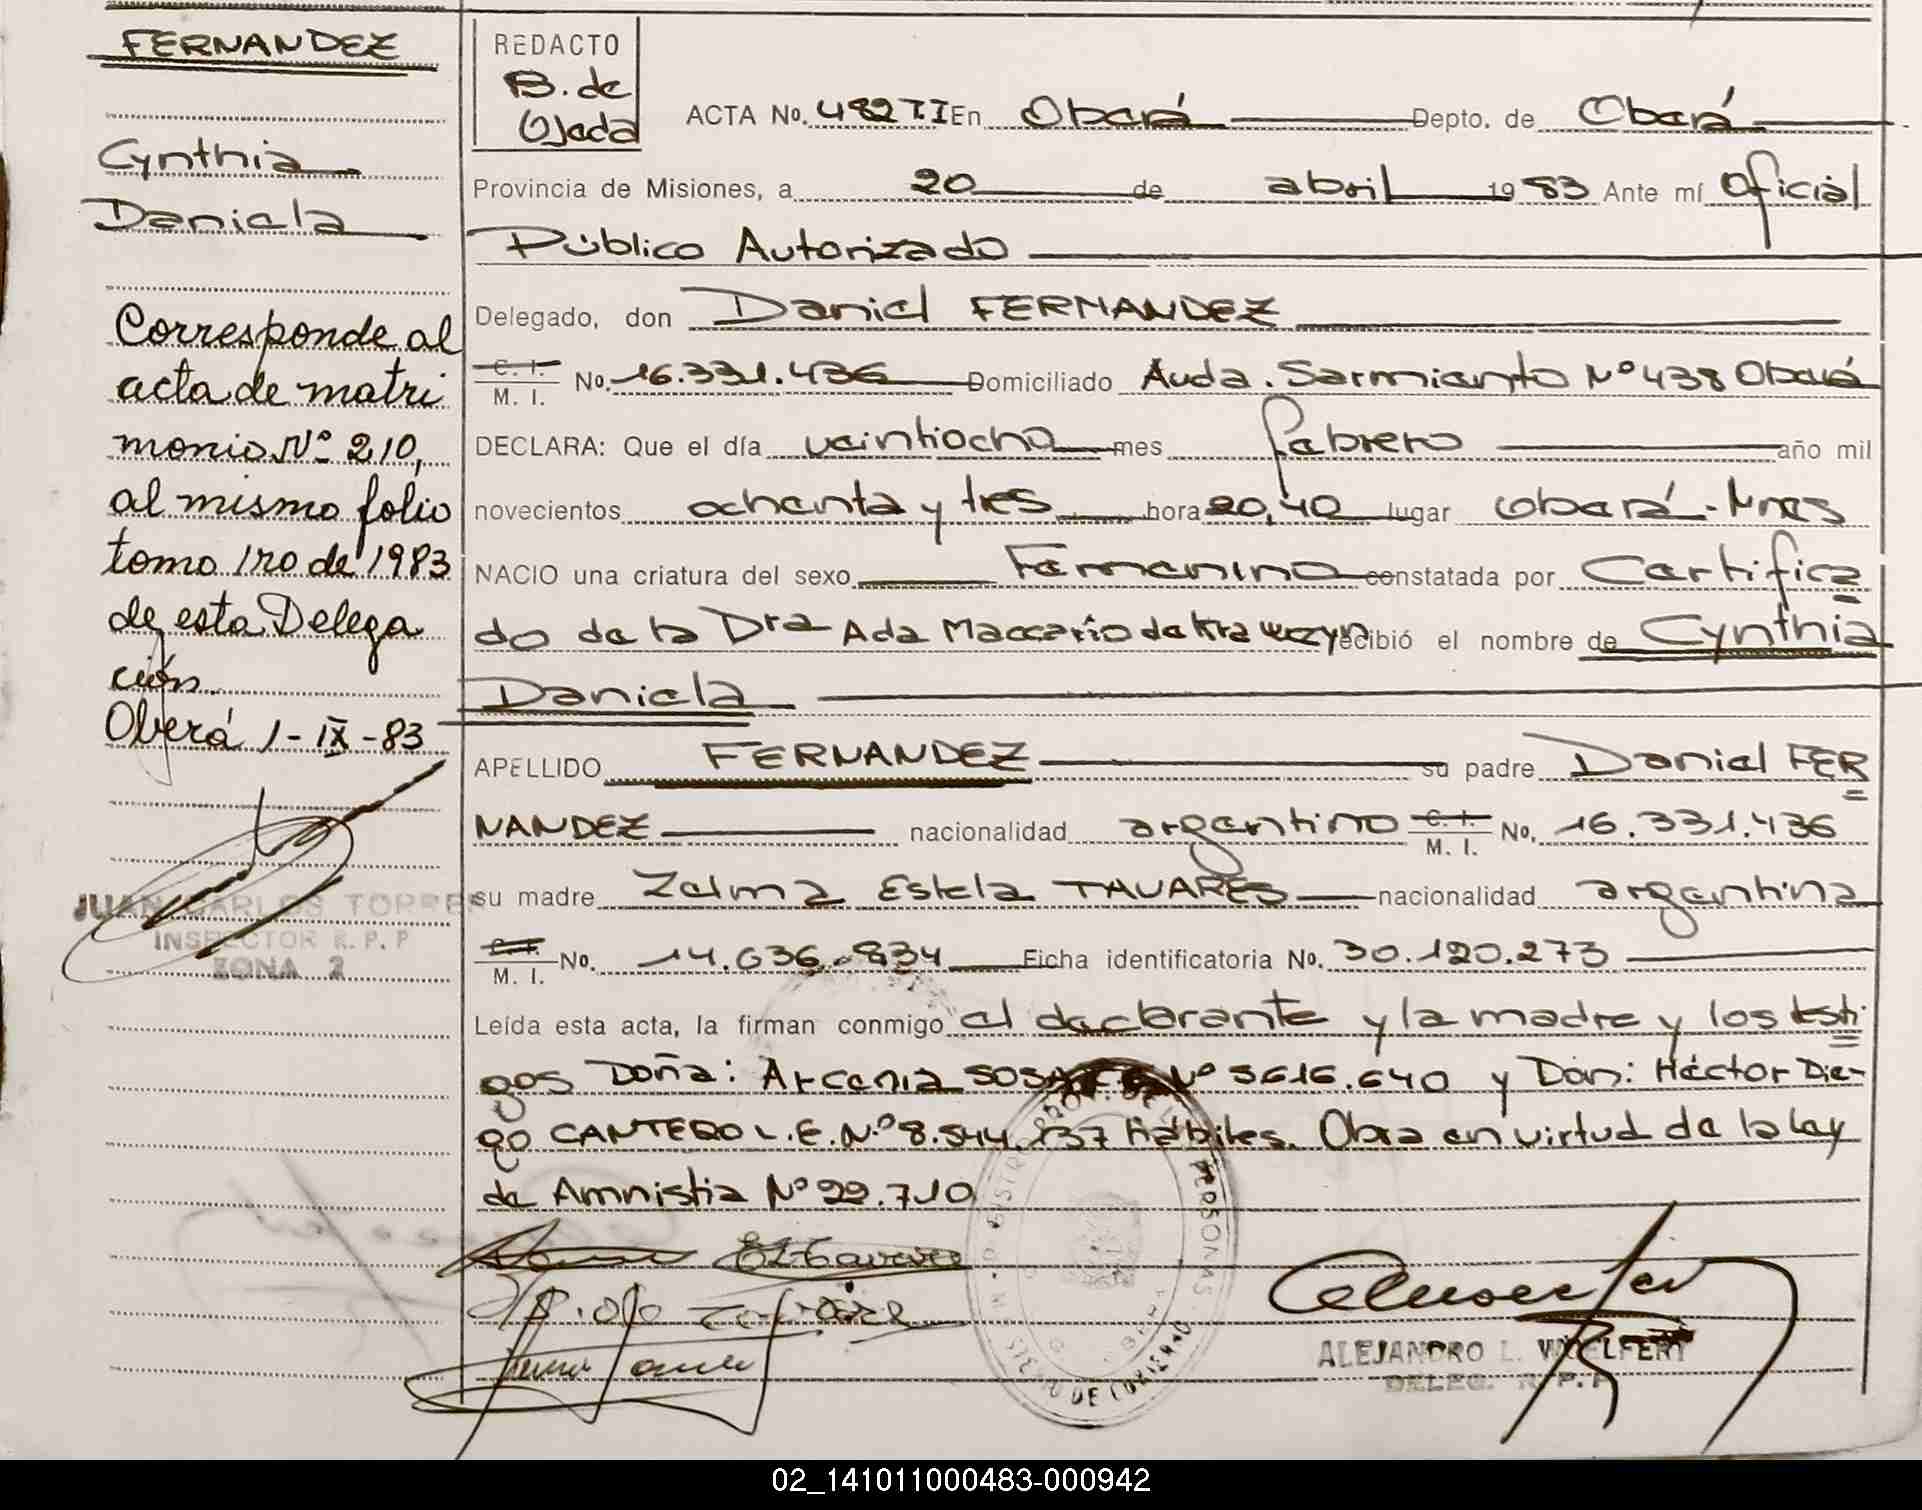 FERNANDEZ
Cynthia
Daniela
Corresponde al
acta de matri
monio Nº 210,
al mismo folio
tomo 1ro de 1983
de esta Delega
ción.
Oberá 1-IX-83
JUAN CARLOS TORRES
INSPECTOR R. P. P
ZONA 2
REDACTO
B. de
Ojeda
ACTA No. 482 TI En Oberá Depto. de Oberá
Provincia de Misiones, a 20 de abril 19 83 Ante mí Oficial
Público Autorizado
Delegado, don Daniel FERNANDEZ
C. I. M. I. No. 16.331.436 Domiciliado Avda. Sarmiento Nº 438 Oberá
DECLARA: Que el día veintiocho mes febrero año mil
novecientos ochenta y tres hora 20,40 lugar Oberá - Mnes
NACIO una criatura del sexo Femenino constatada por Certifica
do de la Dra Ada Maccario de Krawczyn recibió el nombre de Cynthia
Daniela
APELLIDO FERNANDEZ su padre Daniel FER
NANDEZ nacionalidad argentino C. I. M. I. No. 16.331.436
su madre Zelma Estela TAVARES nacionalidad argentina
C. I. M. I. No. 14.636.834 Ficha identificatoria No. 30.120.273
Leída esta acta, la firman conmigo el declarante y la madre y los testi
gos Doña: Arcenia SOSA Nº 5616.640 y Don: Héctor Die-
go CANTERO L.E. N.º 8.544.737 Hábiles. Obra en virtud de la ley
de Amnistia Nº 22.710
ALEJANDRO L. WOELFERT
DELEG. R. P. P.
02_141011000483-000942